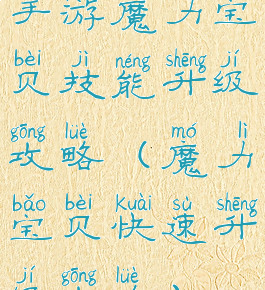 手游魔力宝
bèi jì néng shēng jí
贝技能升级
gōng lüè mó lì
攻略(魔力
bǎo bèi kuài sù shēng
宝贝快速升
jí gōng lüè